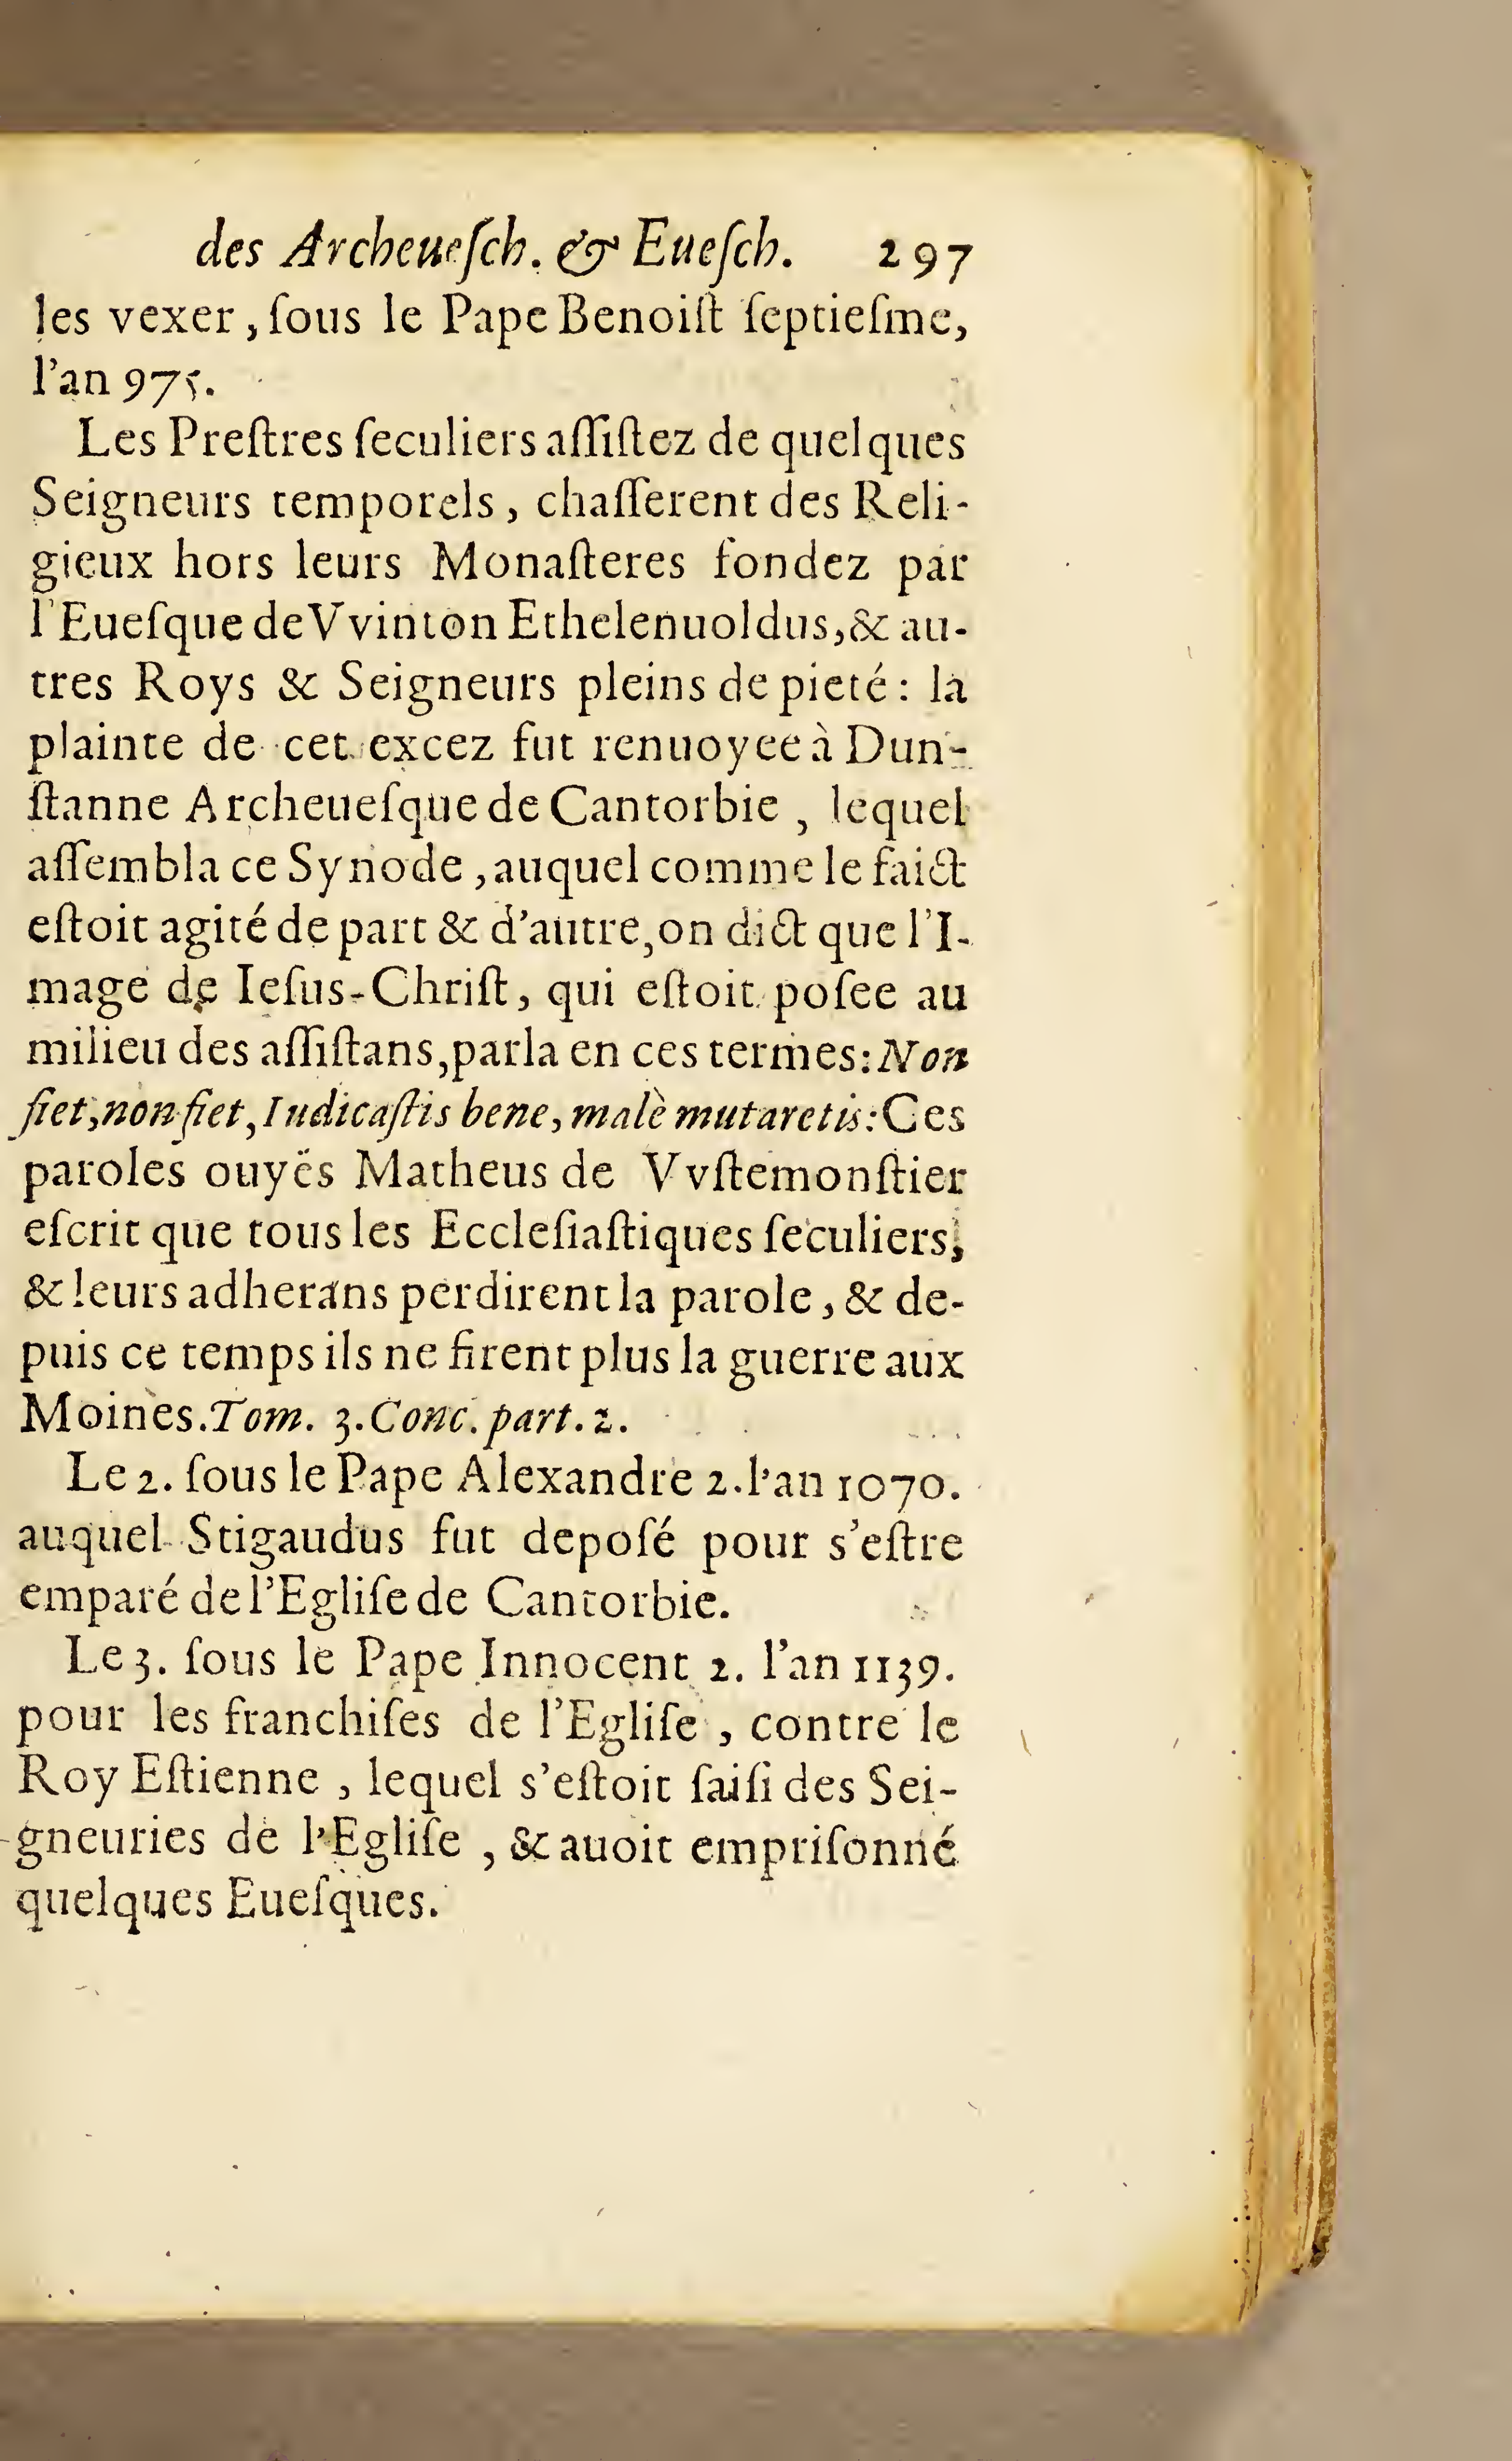 des Archeueſch. & Eueſch. 297
les vexer, ſous le Pape Benoiſt ſeptieſme,
l'an 975.
Les Preſtres ſeculiers aſſiſtez de quelques
Seigneurs temporels, chaſſerent des Reli-
gieux hors leurs Monaſteres fondez par
l'Eueſque de Vvinton Ethelenuoldus, & au-
tres Roys & Seigneurs pleins de pieté: la
plainte de cet excez fut renuoyee à Dun-
ſtanne Archeueſque de Cantorbie, lequel
aſſembla ce Synode, auquel comme le faict
eſtoit agité de part & d'autre, on dict que l'I-
mage de Ieſus-Chriſt, qui eſtoit poſee au
milieu des aſſiſtans, parla en ces termes: Non
fiet, non fiet, Iudicaſtis bene, malè mutaretis: Ces
paroles ouyës Matheus de Vvſtemonſtier
eſcrit que tous les Eccleſiaſtiques ſeculiers,
& leurs adherans perdirent la parole, & de-
puis ce temps ils ne firent plus la guerre aux
Moines. Tom. 3. Conc. part. 2.
Le 2. ſous le Pape Alexandre 2. l'an 1070.
auquel Stigaudus fut depoſé pour s'eſtre
emparé de l'Egliſe de Cantorbie.
Le 3. ſous le Pape Innocent 2. l'an 1139.
pour les franchiſes de l'Egliſe, contre le
Roy Eſtienne, lequel s'eſtoit ſaiſi des Sei-
gneuries de l'Egliſe, & auoit empriſonné
quelques Eueſques.